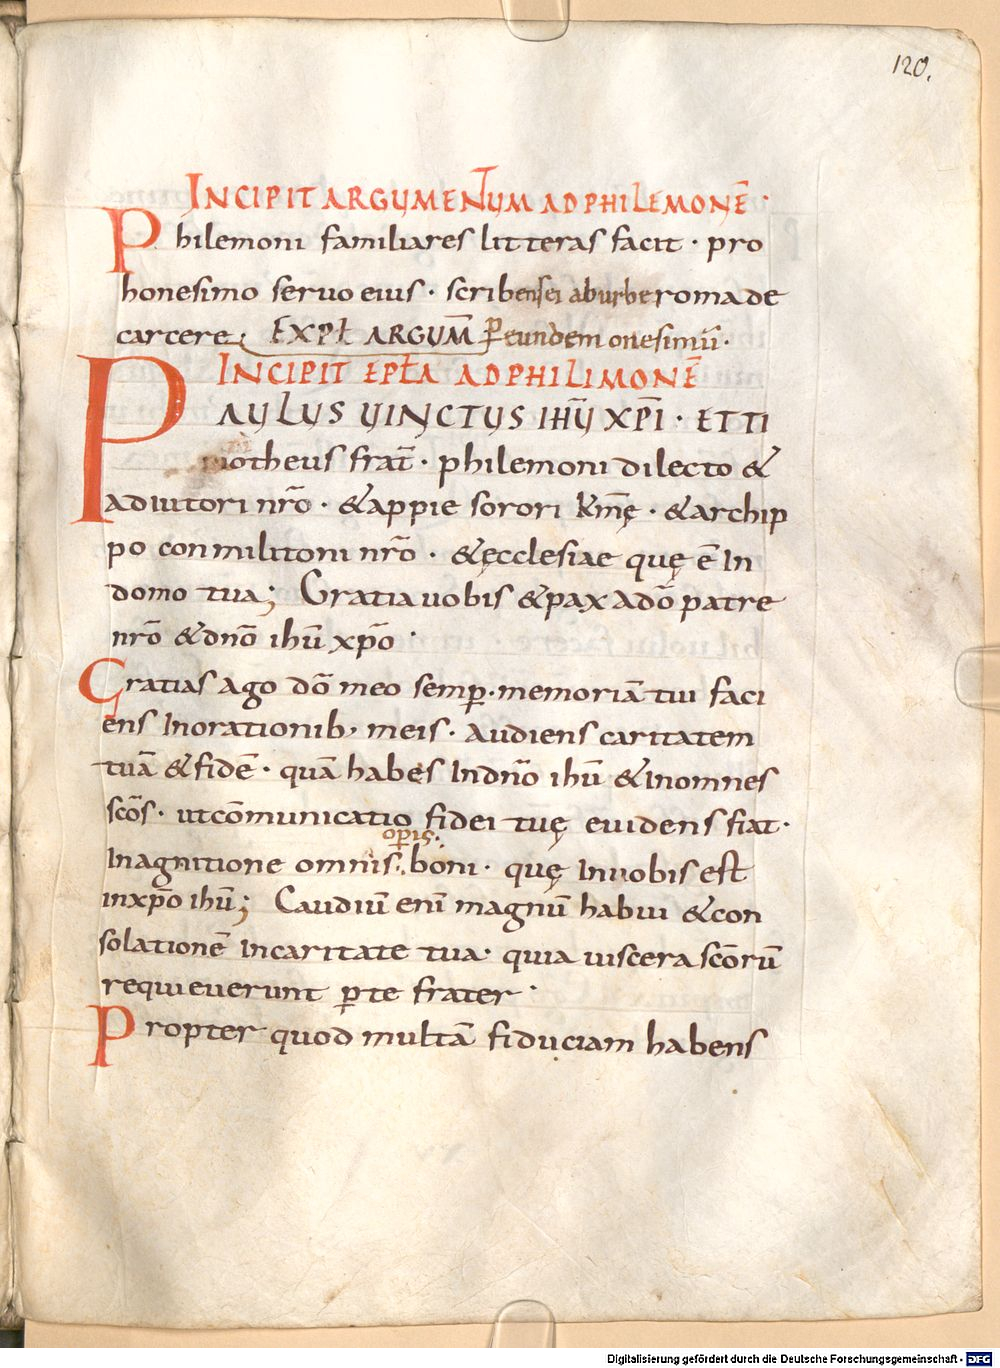 120.
INCIPIT ARGUMENTUM AD PHILEMONĒ ·
Philemoni familiares litteras facit · pro
honesimo seruo eius · scribens ei ab urbe roma de
carcere; EXPŁ ARGUM̄ ꝑ eundem onesimū ·
INCIPIT EPŁA AD PHILIMONĒ
PAULUS UINCTUS IHŪ XPĪ · ET TI
motheus frat̄ · philemoni dilecto &
adiutori nr̄o · & appie sorori km̄ę · & archip
po conmilitoni nr̄o · & ęcclesiae quę ē In
domo tua; Gratia uobis & pax a dō patre
nr̄o & dnō ihū xp̄o ·
Gratias ago dō meo semꝑ · memoriā tui faci
ens In orationib, meis · Audiens caritatem
tuā & fidē · quā habes In dnō ihū & In omnes
scōs · ut cōmunicatio fidei tuę euidens fiat ·
oꝑis ·
In agnitione omnis boni · quę In uobis est
in xp̄o ihū; Gaudiū enī magnū habui & con
solationē In caritate tua · quia uiscera scōrū
requieuerunt ꝑ te frater ·
Propter quod multā fiduciam habens
Digitalisierung gefördert durch die Deutsche Forschungsgemeinschaft - DFG